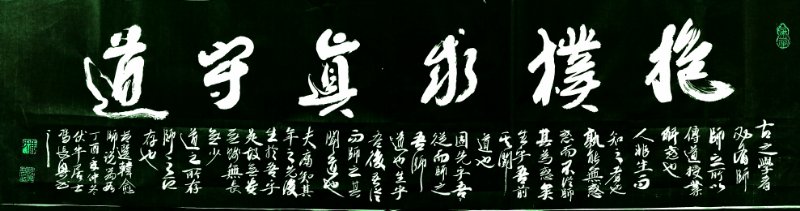 抱樸求真守道
古之學者
必有師
師者所以
傳道授業
解惑也
人非生而
知之者
孰能無惑
惑而不從師
其為惑矣
生乎吾前
其聞
道也
固先乎吾
從而師之
吾師
道也生乎
吾後吾從
而師之
聞道也
夫庸知其
年之先後
生於吾乎
是故無貴
無賤無長
無少
道之所存
師之所
存也
選韓愈
師說
丁酉
伏牛居士